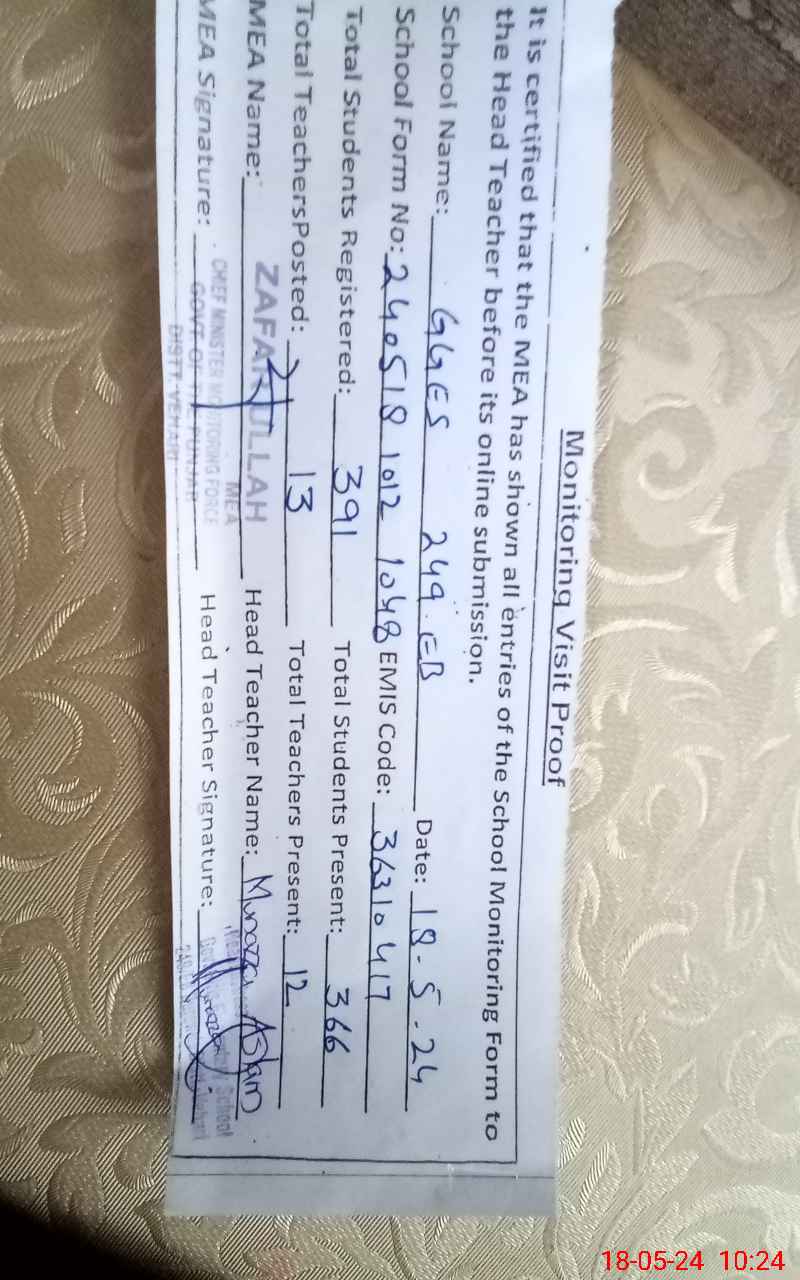 Monitoring Visit Proof
It is certified that the MEA has shown all entries of the School Monitoring Form to
the Head Teacher before its online submission.
School Name: GGES 249.EB Date: 18-5-24
School Form No: 240518 1012 1048 EMIS Code: 36310417
Total Students Registered: 391 Total Students Present: 366
Total TeachersPosted: 13 Total Teachers Present: 12
MEA Name: ZAFAR ULLAH Head Teacher Name: Munazza Aslam
MEA
MEA Signature: CHIEF MINISTER MONITORING FORCE Head Teacher Signature:
GOVT OF THE PUNJAB
DISTT. VEHARI
School
18-05-24 10:24